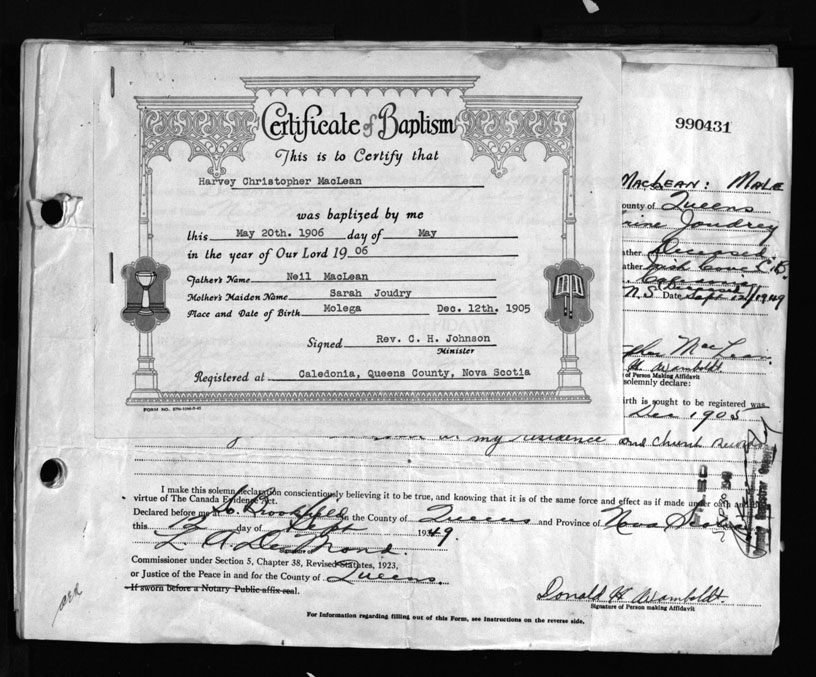 990431
Certificate of Baptism
This is to Certify that
Harvey Christopher MacLean
was baptized by me
this May 20th. 1906 day of May
in the year of Our Lord 19 06
Father's Name Neil MacLean
Mother's Maiden Name Sarah Joudry
Place and Date of Birth Molega Dec. 12th. 1905
Signed Rev. C. H. Johnson
Minister
Registered at Caledonia, Queens County, Nova Scotia
MacLean: Male
ounty of Queens
rine Joudrey
ather
ather Irish Cove C.B.
N.S. Date Sept 12/1949
pher MacLean
H. Wamboldt
of Person Making Affidavit
solemnly declare:
irth is sought to be registered was
Dec 1905
my residence and church records
I make this solemn declaration conscientiously believing it to be true, and knowing that it is of the same force and effect as if made under oath and
virtue of The Canada Evidence Act.
Declared before me at So. Brookfield in the County of Queens and Province of Nova Scotia
this 12 day of Sept 1949
Commissioner under Section 5, Chapter 38, Revised Statutes, 1923,
or Justice of the Peace in and for the County of Queens.
If sworn before a Notary Public affix seal.
Donald H Wamboldt.
Signature of Person making Affidavit
For Information regarding filling out of this Form, see Instructions on the reverse side.